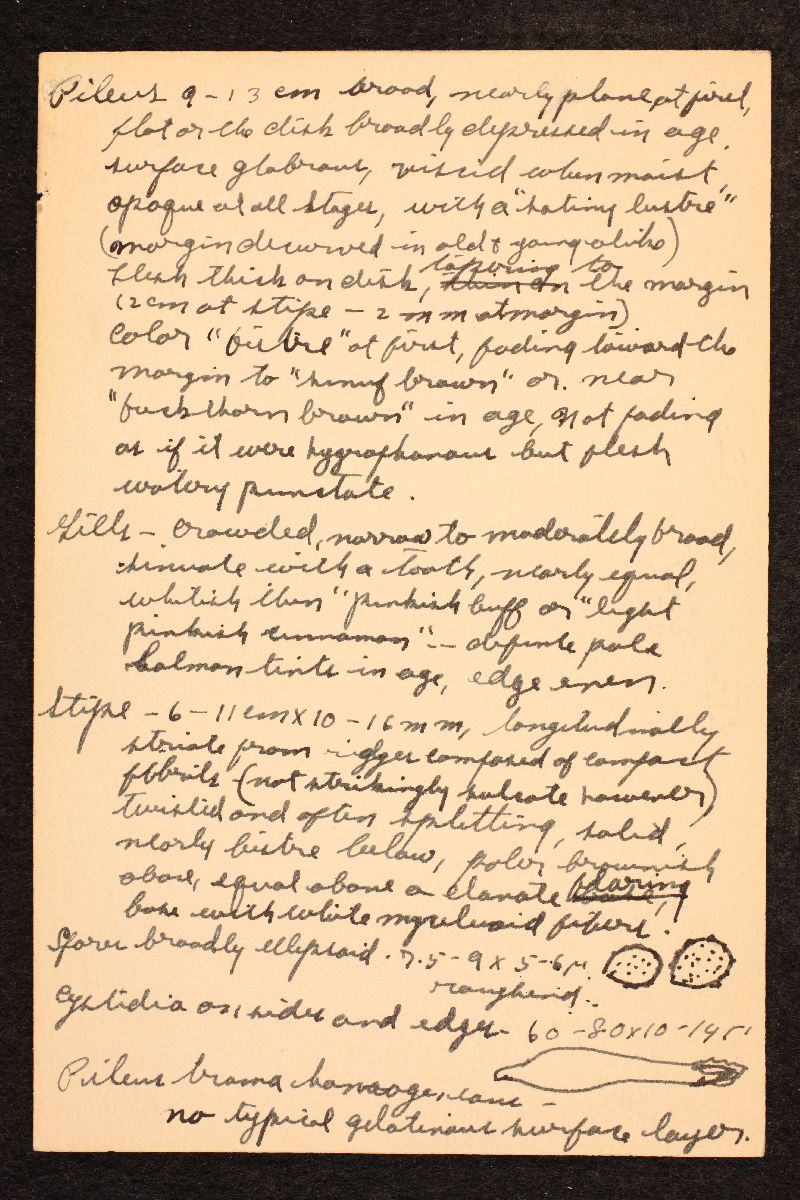 Pileus 9-13 cm broad, nearly plane at first,
flat or the disk broadly depressed in age,
surface glabrous, viscid when moist,
opaque at all stages, with a "satiny lustre"
(margin decurved in old & young alike)
flesh thick on disk, tapering to the margin
(2 cm at stipe - 2 mm at margin)
Color "bistre" at first, fading toward the
margin to "snuf brown" or near
"buckthorn brown" in age, not fading
as if it were hygrophanous but flesh
watery punctate.
Gills - crowded, narrow to moderately broad,
sinuate with a tooth, nearly equal,
whitish then "pinkish buff or "light
pinkish cinnamon" - definite pale
salmon tints in age, edge even.
Stipe - 6-11 cm x 10-16 mm, longitudinally
striate from ridges composed of compact
fibrils (not strikingly sulcate however)
twisted and often splitting, solid,
nearly bistre below, paler brownish
above, equal above a clavate
base with white myceloid fibers.
Spores broadly ellipsoid. 7.5-9 x 5-6µ
roughend.
Cystidia on sides and edges - 60-80x10-14µ
Pileus trama homogeneous -
no typical gelatinous surface layer.